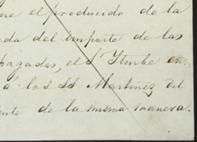 ue el producido de la
da del importe de las
pagadas, el Sr Stinke en
a los SS Martinez del
nte de la misma manera.